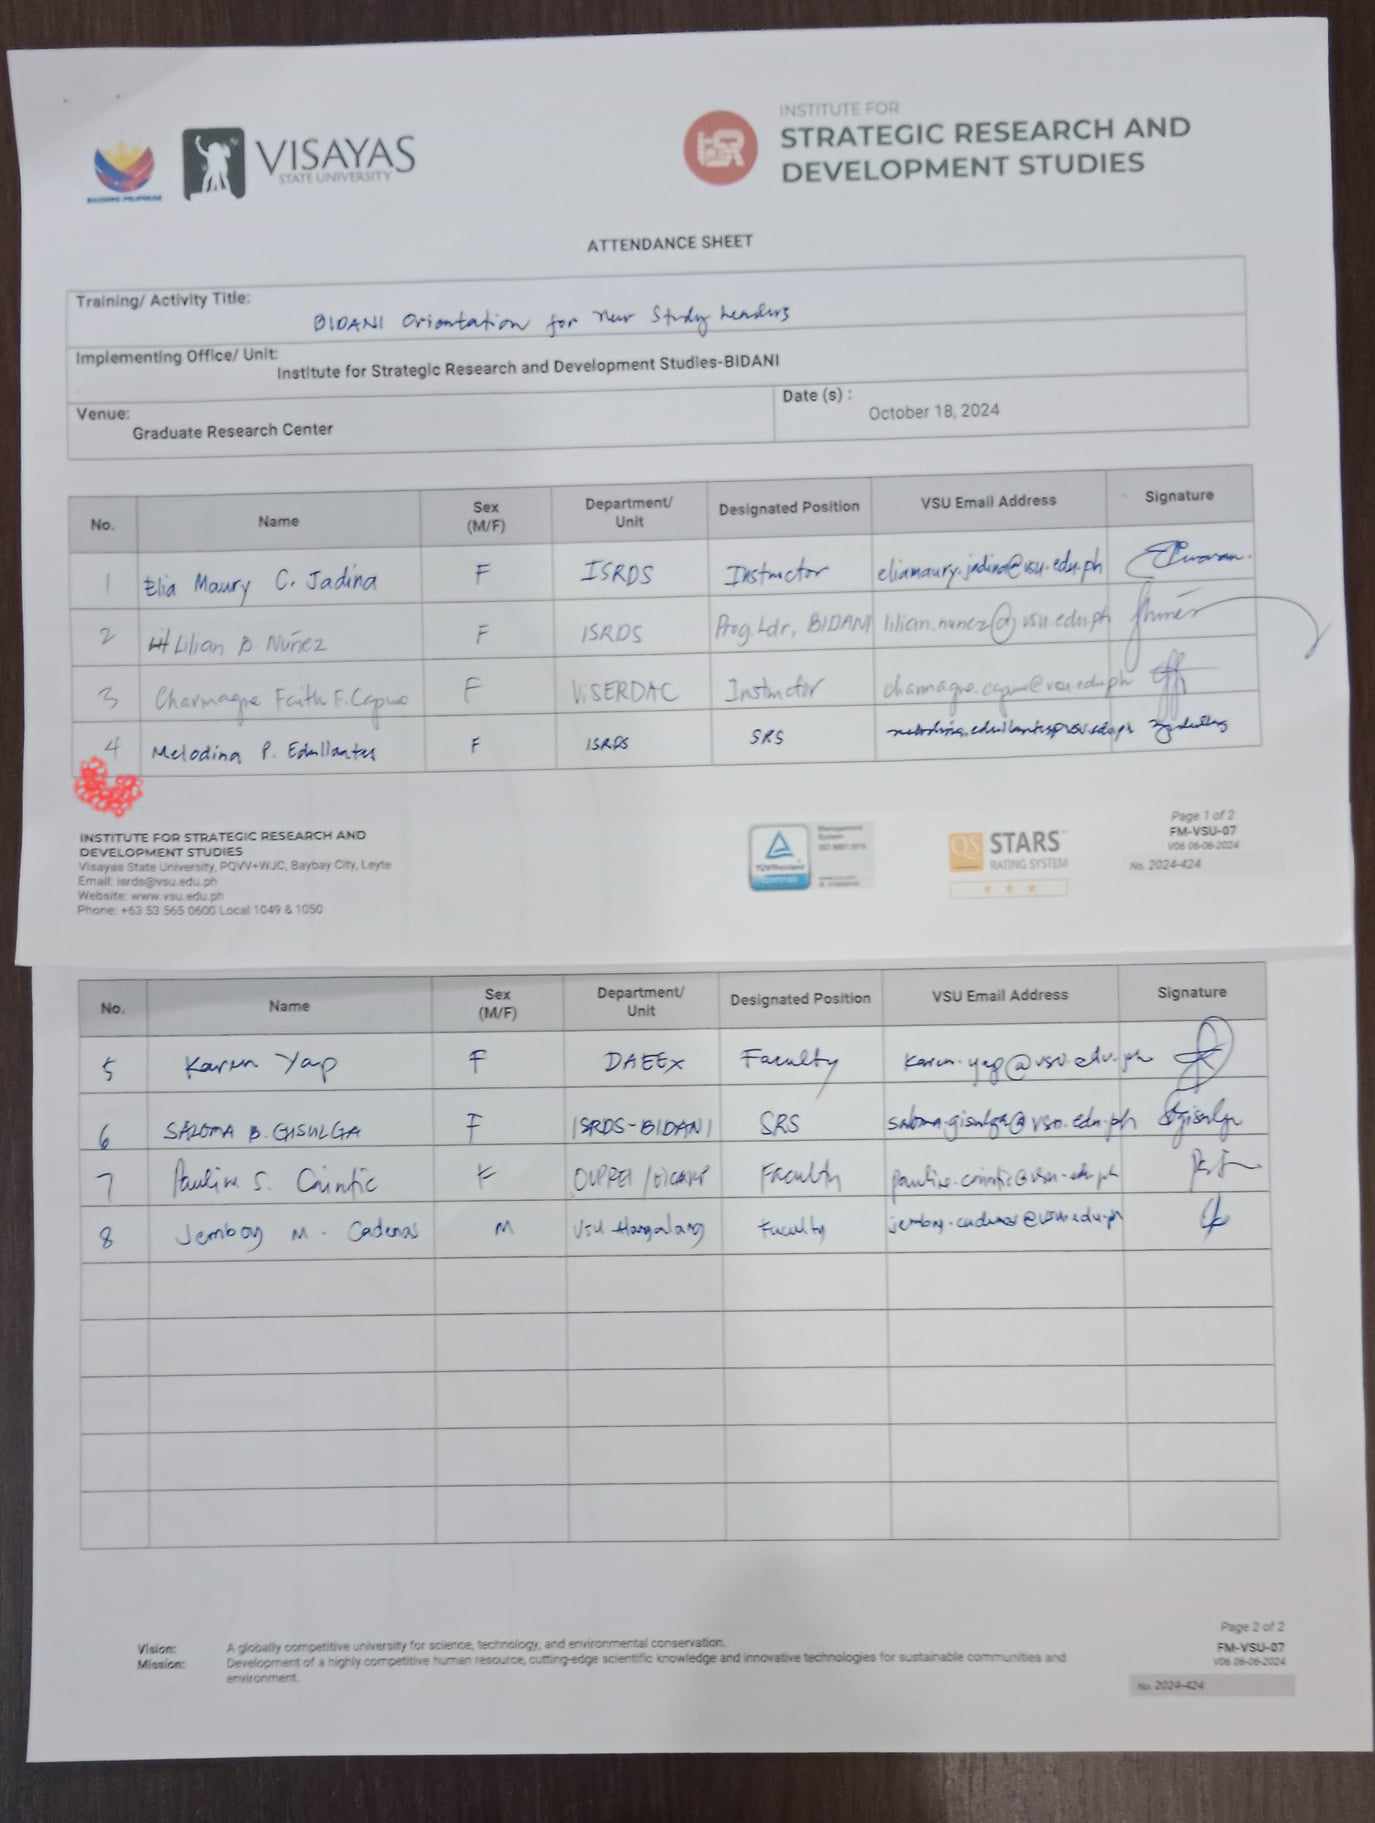 VISAYAS
STATE UNIVERSITY
INSTITUTE FOR
STRATEGIC RESEARCH AND
DEVELOPMENT STUDIES
ATTENDANCE SHEET
Training/ Activity Title:
BIDANI Orientation for New Study Leaders
Implementing Office/ Unit:
Institute for Strategic Research and Development Studies-BIDANI
Venue:
Graduate Research Center
Date (s) :
October 18, 2024
No. Name Sex (M/F) Department/ Unit Designated Position VSU Email Address Signature
1 Elia Maury C. Jadina F ISRDS Instructor eliamaury.jadina@vsu.edu.ph
2 Lilian B. Nuñez F ISRDS Prog. Ldr, BIDANI lilian.nunez@vsu.edu.ph
3 Charmagne Faith F. Capuno F ViSERDAC Instructor
4 Melodina P. Edullantes F ISRDS SRS
INSTITUTE FOR STRATEGIC RESEARCH AND
DEVELOPMENT STUDIES
Visayas State University, PQVV+WJC, Baybay City, Leyte
Email: isrds@vsu.edu.ph
Website: www.vsu.edu.ph
Phone: +63 53 565 0600 Local 1049 & 1050
QS STARS
RATING SYSTEM
Page 1 of 2
FM-VSU-07
V06 06-06-2024
No. 2024-424
No. Name Sex (M/F) Department/ Unit Designated Position VSU Email Address Signature
5 Karen Yap F DAEEx Faculty karen.yap@vsu.edu.ph
6 SALOMA B. GISULGA F ISRDS-BIDANI SRS saloma.gisulga@vsu.edu.ph
7 Pauline S. F Faculty
8 Jemboy M. Cadenas M VSU Faculty jemboy.cadenas@vsu.edu.ph
Vision: A globally competitive university for science, technology, and environmental conservation.
Mission: Development of a highly competitive human resource, cutting-edge scientific knowledge and innovative technologies for sustainable communities and
environment.
Page 2 of 2
FM-VSU-07
V06 06-06-2024
No. 2024-424